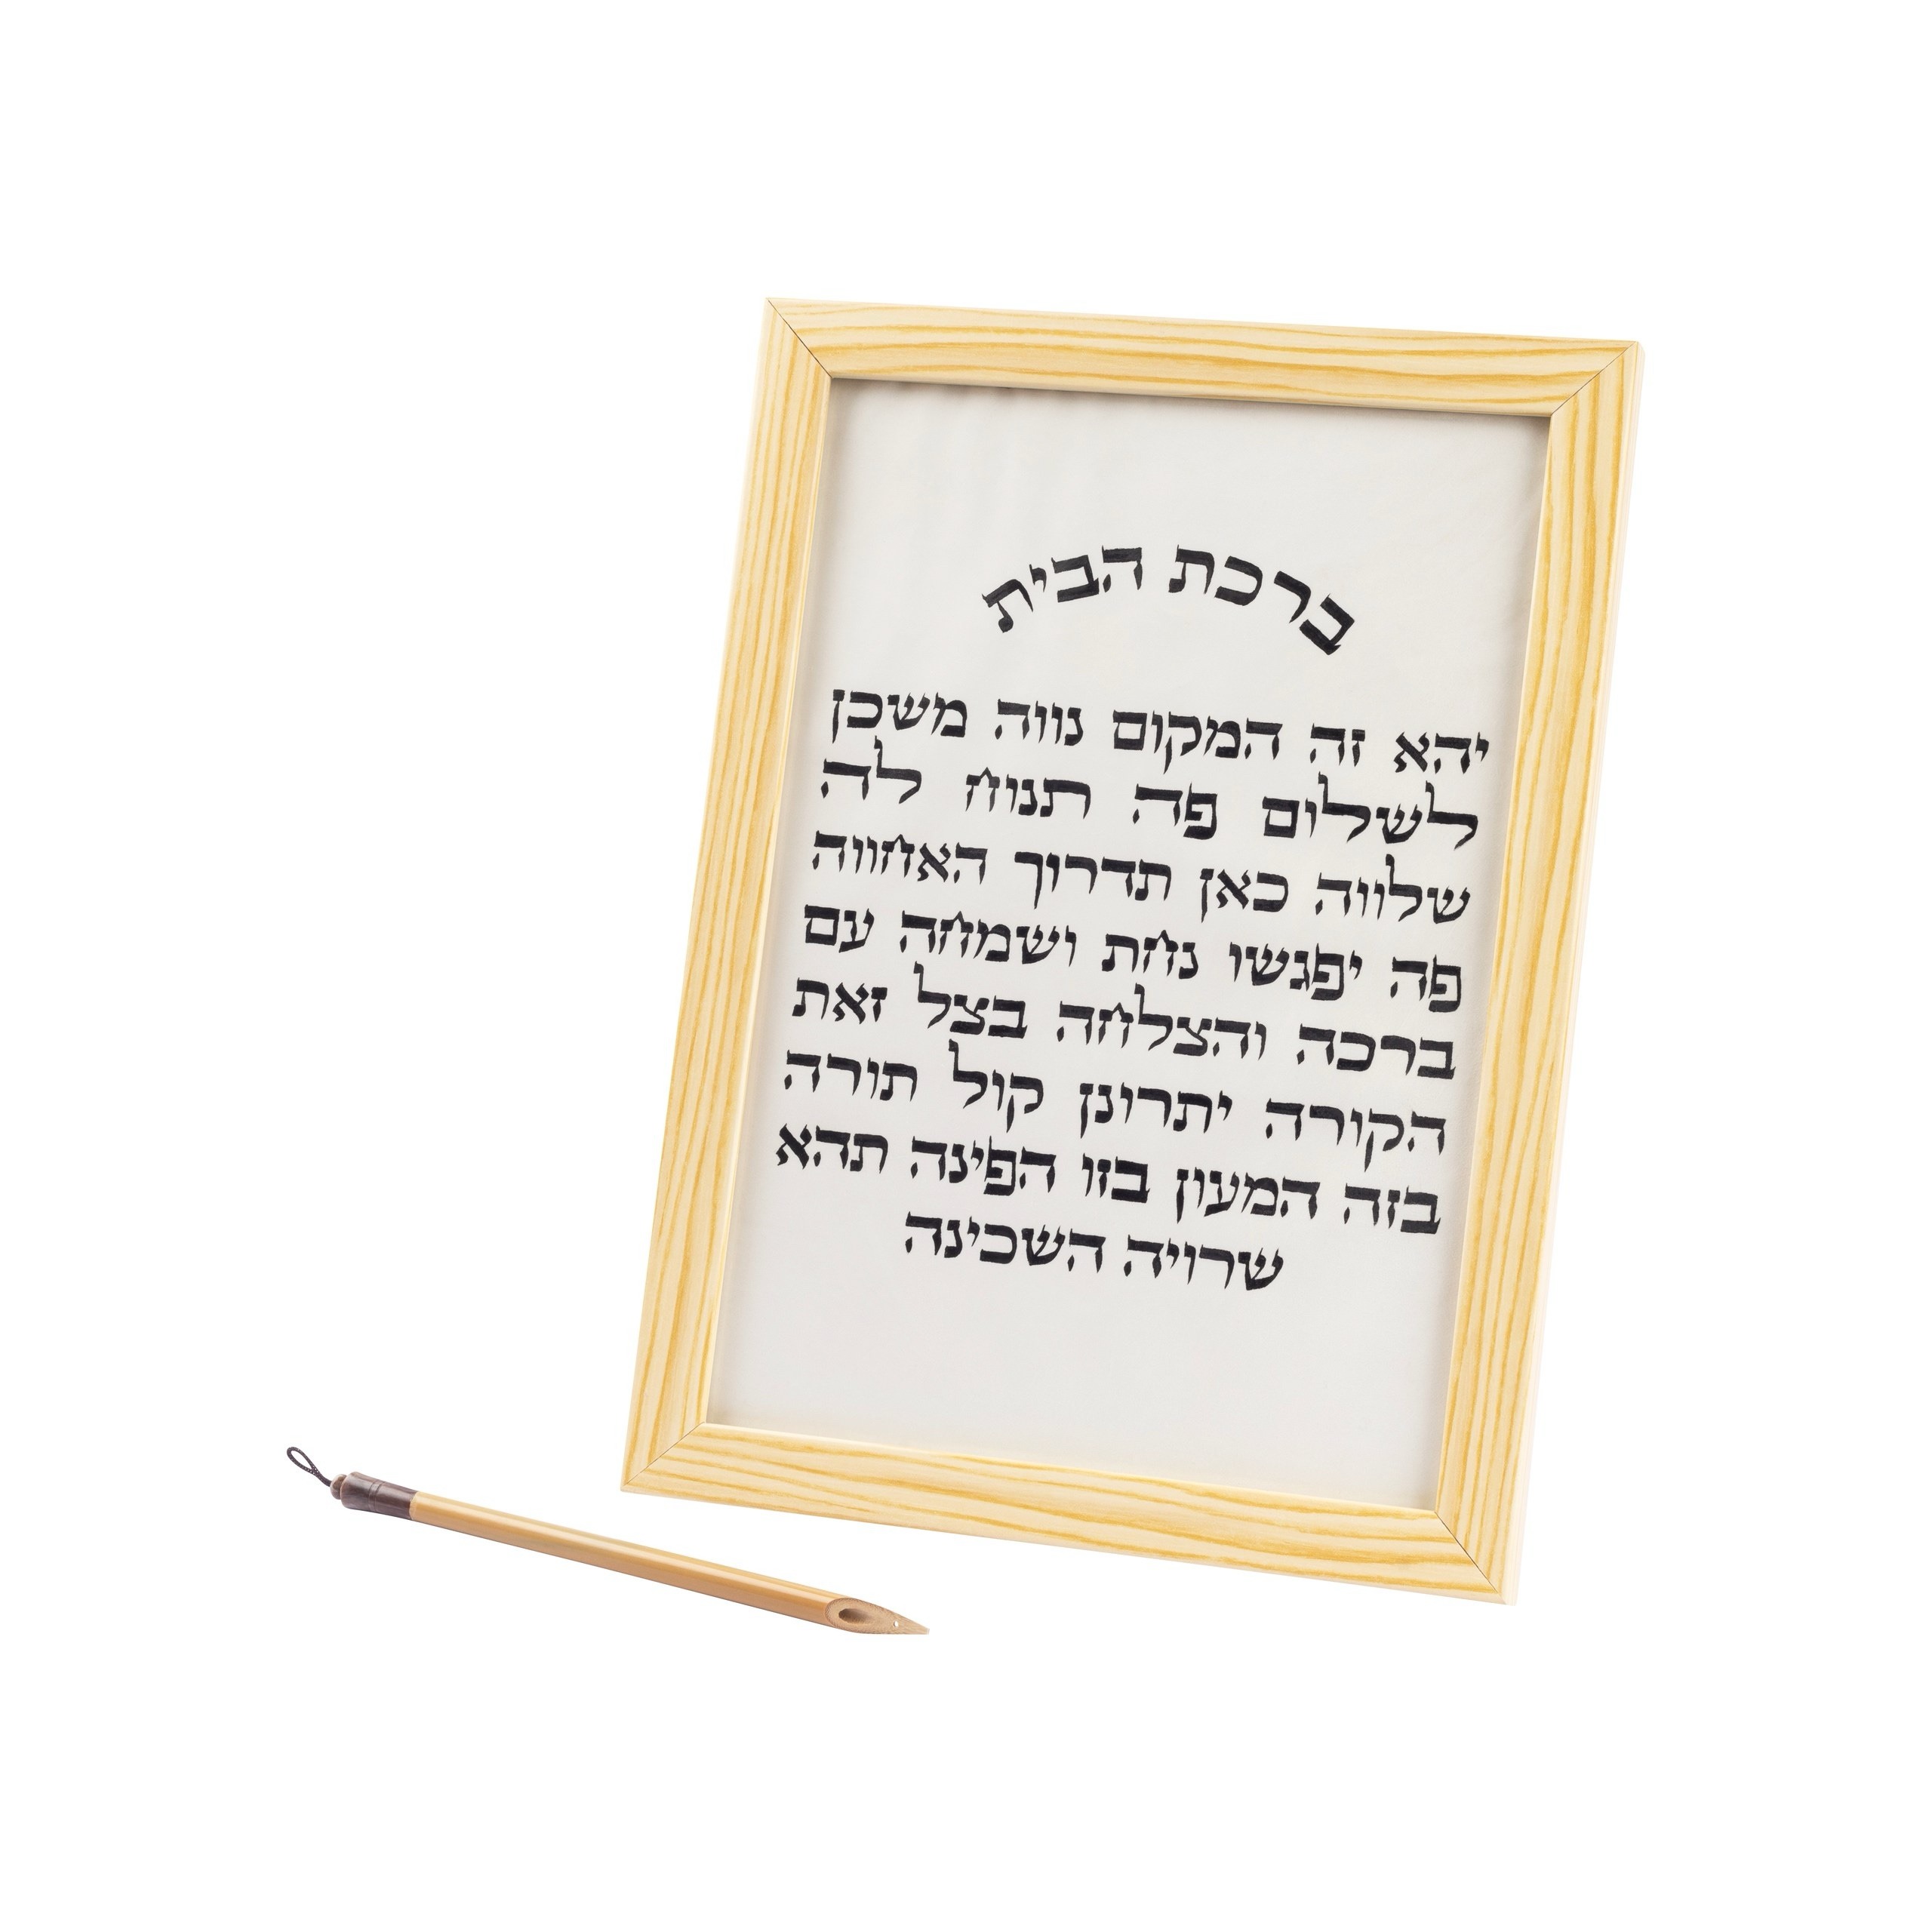 ברכת הבית
יהא זה המקום נווה משכן
לשלום פה תנוח לה
שלווה כאן תדרוך האחווה
פה יפגשו נחת ושמחה עם
ברכה והצלחה בצל זאת
הקורה יתרונן קול תורה
בזה המעון בזו הפינה תהא
שרויה השכינה